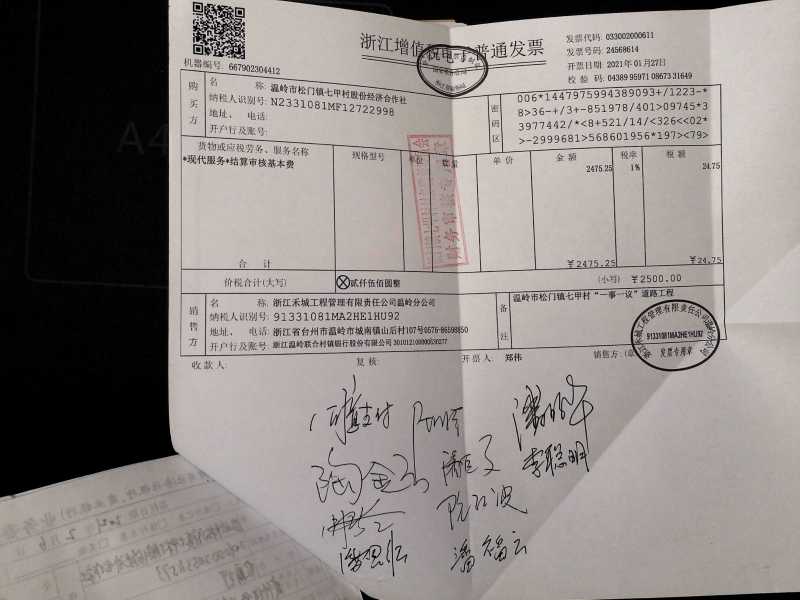 浙江增值税电子普通发票
发票代码: 033002000611
发票号码: 24568614
开票日期: 2021年01月27日
校验码: 04389 95971 08673 31649
机器编号: 667902304412
购买方
名称: 温岭市松门镇七甲村股份经济合作社
纳税人识别号: N2331081MF12722998
地址、电话:
开户行及账号:
密码区
006*1447975994389093+/1223-*
8>36-+/3+-851978/401>09745*3
3977442/*<8+521/14/<326<<02*
>-2999681>568601956*197><79>
货物或应税劳务、服务名称 规格型号 单位 数量 单价 金额 税率 税额
*现代服务*结算审核基本费 2475.25 1% 24.75
合计 ￥2475.25 ￥24.75
价税合计(大写) ⊗贰仟伍佰圆整 (小写) ￥2500.00
销售方
名称: 浙江禾城工程管理有限责任公司温岭分公司
纳税人识别号: 91331081MA2HE1HU92
地址、电话: 浙江省台州市温岭市城南镇山后村107号0576-86598850
开户行及账号: 浙江温岭联合村镇银行股份有限公司
备注
温岭市松门镇七甲村“一事一议”道路工程
浙江禾城工程管理有限责任公司温岭分公司
91331081MA2HE1HU92
发票专用章
收款人: 复核: 开票人: 郑伟 销售方: (章)
李聪明
潘福云